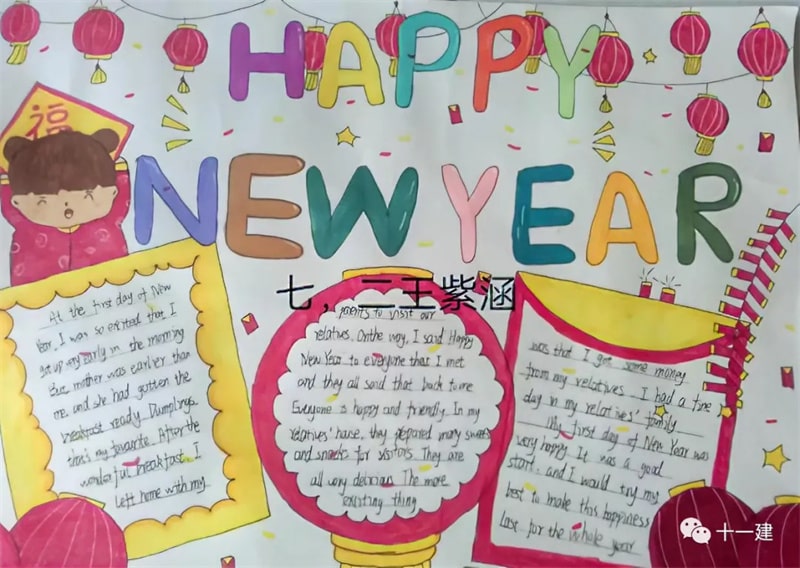 HAPPY
NEW YEAR
福
七，二王紫涵
At the first day of New
Year, I was so excited that I
got up very early in the morning
But mother was earlier than
me and she had gotten the
breakfast ready. Dumplings
that's my favourite. After the
wonderful breakfast, I
left home with my
parents to visit our
relatives. On the way, I said Happy
New Year to everyone that I met
and they all said that back to me
Everyone is happy and friendly. In my
relatives' house, they prepared many sweets
and snacks for visitors. They are
all very delicious. The more
exciting thing
was that I got some money
from my relatives. I had a fine
day in my relatives' family
My first day of New Year was
very happy. It was a good
start, and I would try my
best to make this happiness
last for the whole year
十一建